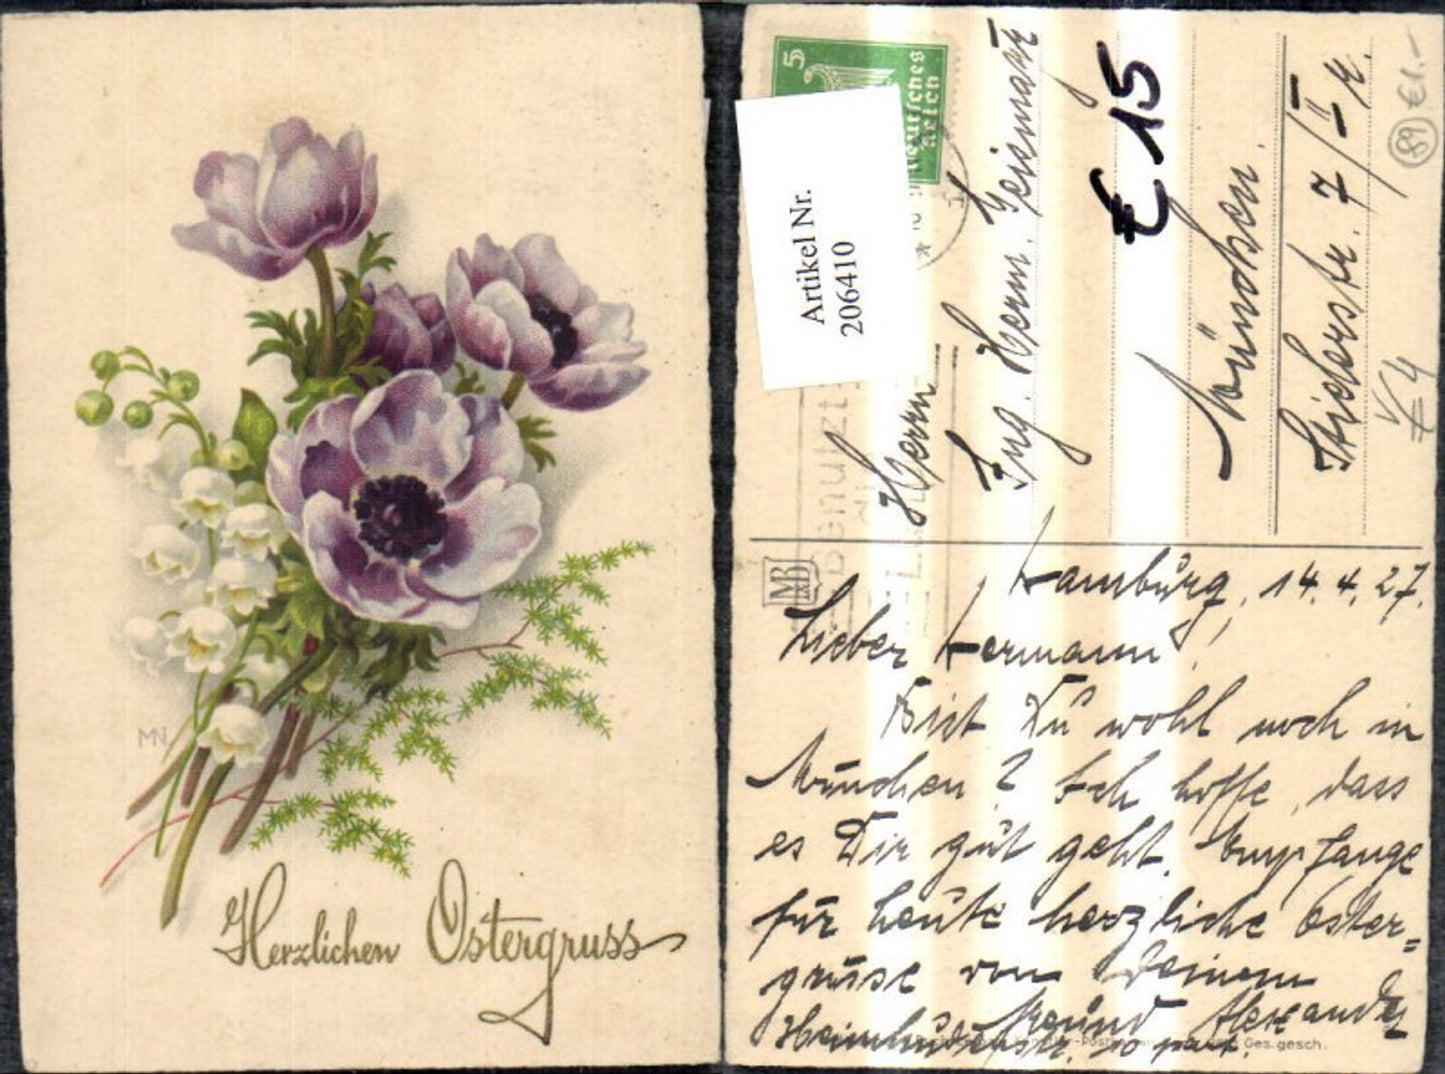 MN
Herzlichen Ostergruss
5
Deutsches
Reich
Artikel Nr.
206410
Benutzt
Herrn
Ing. Herm. Geismar
€ 15
München.
7/II r.
89
€1.-
€ 4
MB
Hamburg, 14.4.27.
Lieber Hermann!
Bist Du wohl noch in
München? Ich hoffe, dass
es Dir gut geht. Empfange
für heute herzliche Oster=
grüsse von Deinem
Freund Alexander
Heimhuderstr. 10 part.
Ges. gesch.